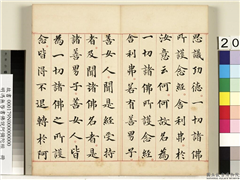 思議功德一切諸佛
所護念經舍利弗於
汝意云何何故名為
一切諸佛所護念經
舍利弗若有善男子
善女人聞是經受持
者及聞諸佛名者是
諸善男子善女人皆
為一切諸佛之所護
念皆得不退轉於阿
20